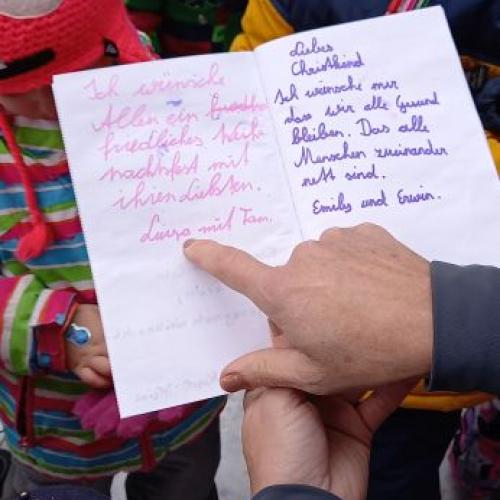 Ich wünsche
Allen ein
friedliches Weih-
nachtsfest mit
ihren Liebsten.
mit Fam.
Liebes
Christkind
Ich wünsche mir
dass wir alle Gesund
bleiben. Das alle
Menschen zueinander
nett sind.
Emily und Erwin.